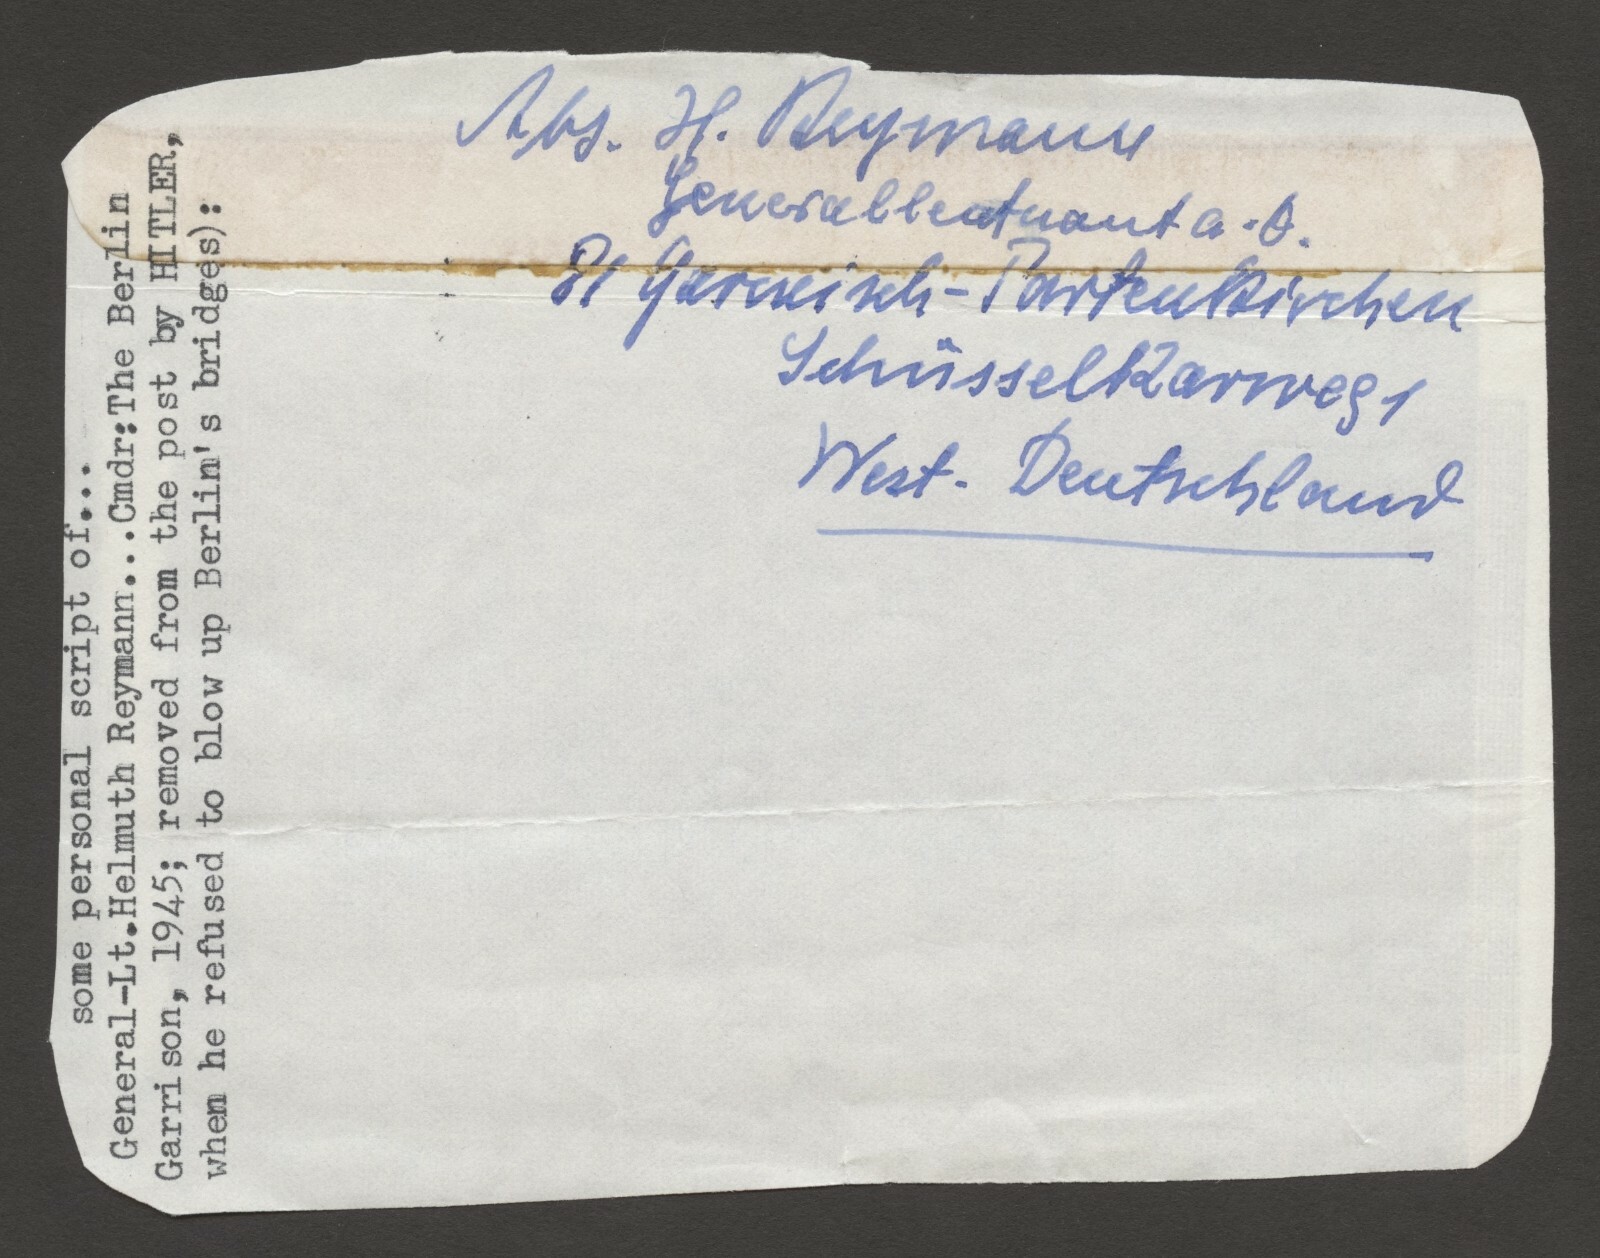 some personal script of...
General-Lt.Helmuth Reymann...Cmdr:The Berlin
Garrison, 1945; removed from the post by HITLER,
when he refused to blow up Berlin's bridges):
Abs. H. Reymann
Generalleutnant a.D.
81 Garmisch-Partenkirchen
Schüsselkarweg 1
West-Deutschland